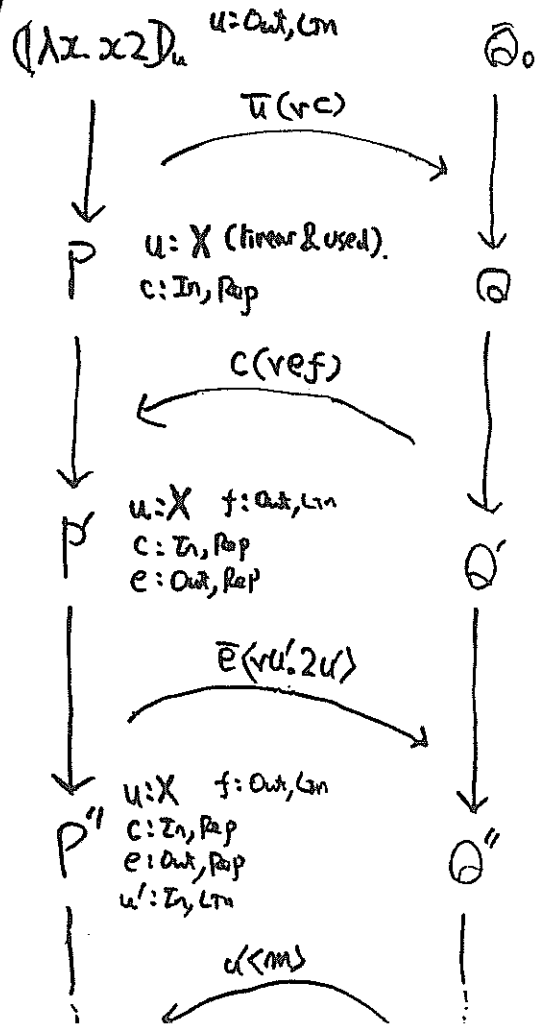 (|λx.x2|)u u:Out,Lin Q₀
ū(νc)
P u: X (linear & used). Q
c: In, Rep
c(νef)
P' u:X f:Out,Lin Q'
c: In, Rep
e: Out, Rep
ē⟨νu'.2u'⟩
P'' u:X f:Out,Lin Q''
c: In, Rep
e: Out, Rep
u': In, Lin
u'⟨m⟩